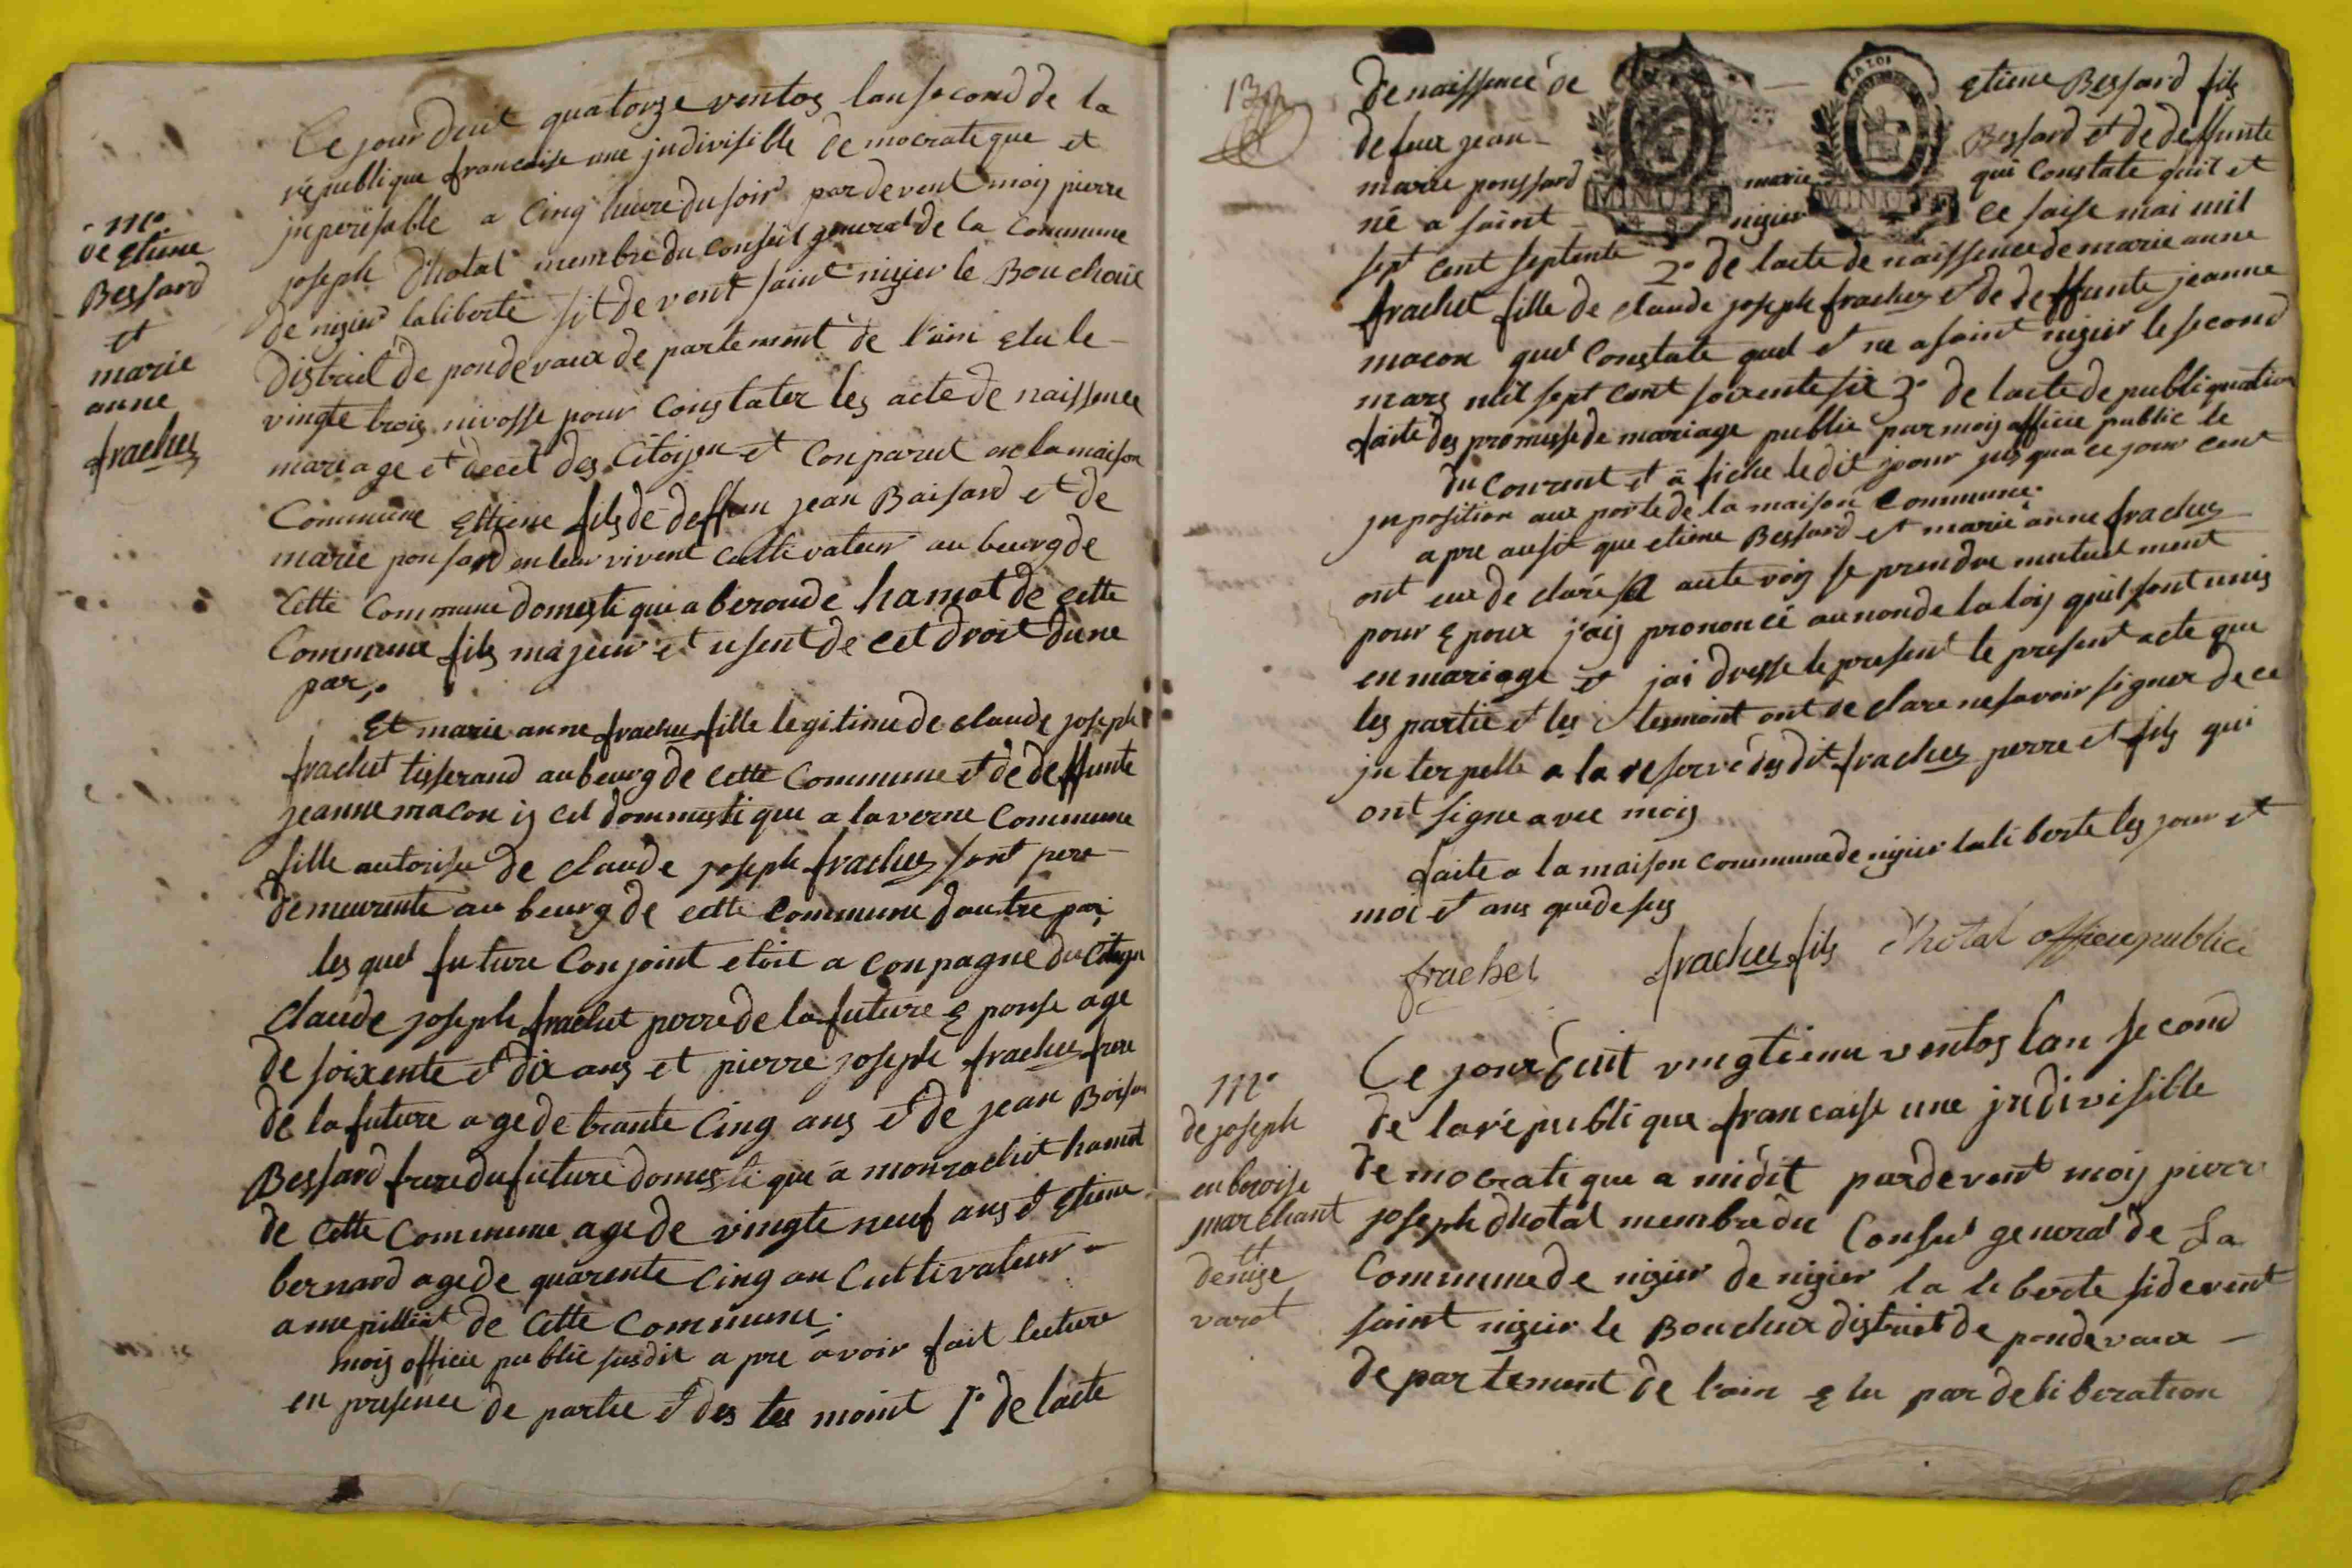 m.o
de etiene
Bessard
et
marie
anne
frachet
Ce jourduit quatorze ventos lan second de la
république francaise une jndivisible democrateque et
jnperisable a Cinq heure du soir par devent moij pierre
joseph Dhotal membre du conseil general de la Commune
de nizier laliberté si devent saint nizier le Bouchoux
District de pondevaux departement de l'ain elu le
vingte trois nivosse pour Constater les acte de naissence
mariage et decet des Citoijen et Conparut en la maison
Commune ettiene fils de deffun jean Baisard et de
marie ponsard en leur vivent cultivateur au beurg de
Cette Commune domestique a beroude hamot de cette
Commune fils majeur et usent de cet droit dune
par.
Et marie anne frachet fille legitime de claude joseph
frachet tisserand au beurg de Cette Commune et de deffunte
jeanne macon ij cel dommestique a laverne Commune
fille autorisee de claude joseph frachet sont pere
demeurente au beurg de cette Commune dautre par
les quel future Conjoint etoit a conpagne du Citoijen
Claude joseph frachet perre de la future epouse age
de soixente et dix ans et pierre joseph frachet frere
de la future age de trante Cinq ans et de jean
Bessard frere du future domestique a monrachit hamot
de cette Commune age de vingte neuf ans et Etiene
bernard age de quarente Cinq an Cultivateur
a mepilliat de Cette Commune.
moij officie public susdit a pre avoir fait lecture
en presence de partie et des tes moint 1.o de lacte
13
de naissence de etiene Bessard fils
de feux jean Bessard et de deffunte
marie poussard marie qui Constate quil et
né a saint nizier ce saise mai mil
sept cent septente 2.o de lacte de naissence de marie anne
frachet fille de claude joseph frachet et de deffunte jeanne
macon quel Constate quel et ne a saint nizier le second
mars mil sept cent soixente six 3.o de lacte de publiquation
faite des promesse de mariage publie par moij officie public le
du Courent et a fiche le dit jour jusqua ce jour cent
jnposition aux porte de la maison Commune.
apre ausit que etiene Bessard et marie anne frachet
ont eue declaré a aute voij se prendre mutuelment
pour epoux j'aij prononcé au non de la loij quil sont unis
en mariage et jai dresse le present le present acte que
les partie et les tesmoint ont de clare ne savoir signer de ce
jnterpelle a la reserve des dit frachet perre et fils qui
ont signe avec moij
faite a la maison commune de nizier laliberte les jour et
moi et ans que de sus
frachet frachet fils Dhotal officie public
m.o
de joseph
enboise
marchant
et
denise
varot
Ce jourduit vingtieme ventos lan second
de la république francaise une jndivisible
democratique a midit pardevent moij pierre
joseph dhotal membre du Conseil general de La
Commune de nizier de nizier la liberte sidevent
saint nizier le Bouchux district de pondevaux
departement de l'ain elu par deliberation
MINUTE
MINUTE
LA LOI